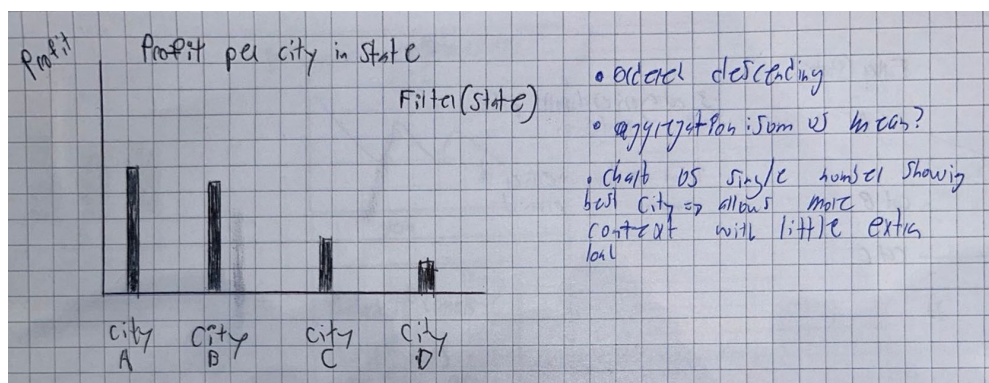 Profit
Profit per city in State
Filter(State)
City A
City B
City C
City D
• ordered descending
• aggregation: sum vs mean?
• chart vs single number showing
best city => allows more
context with little extra
load